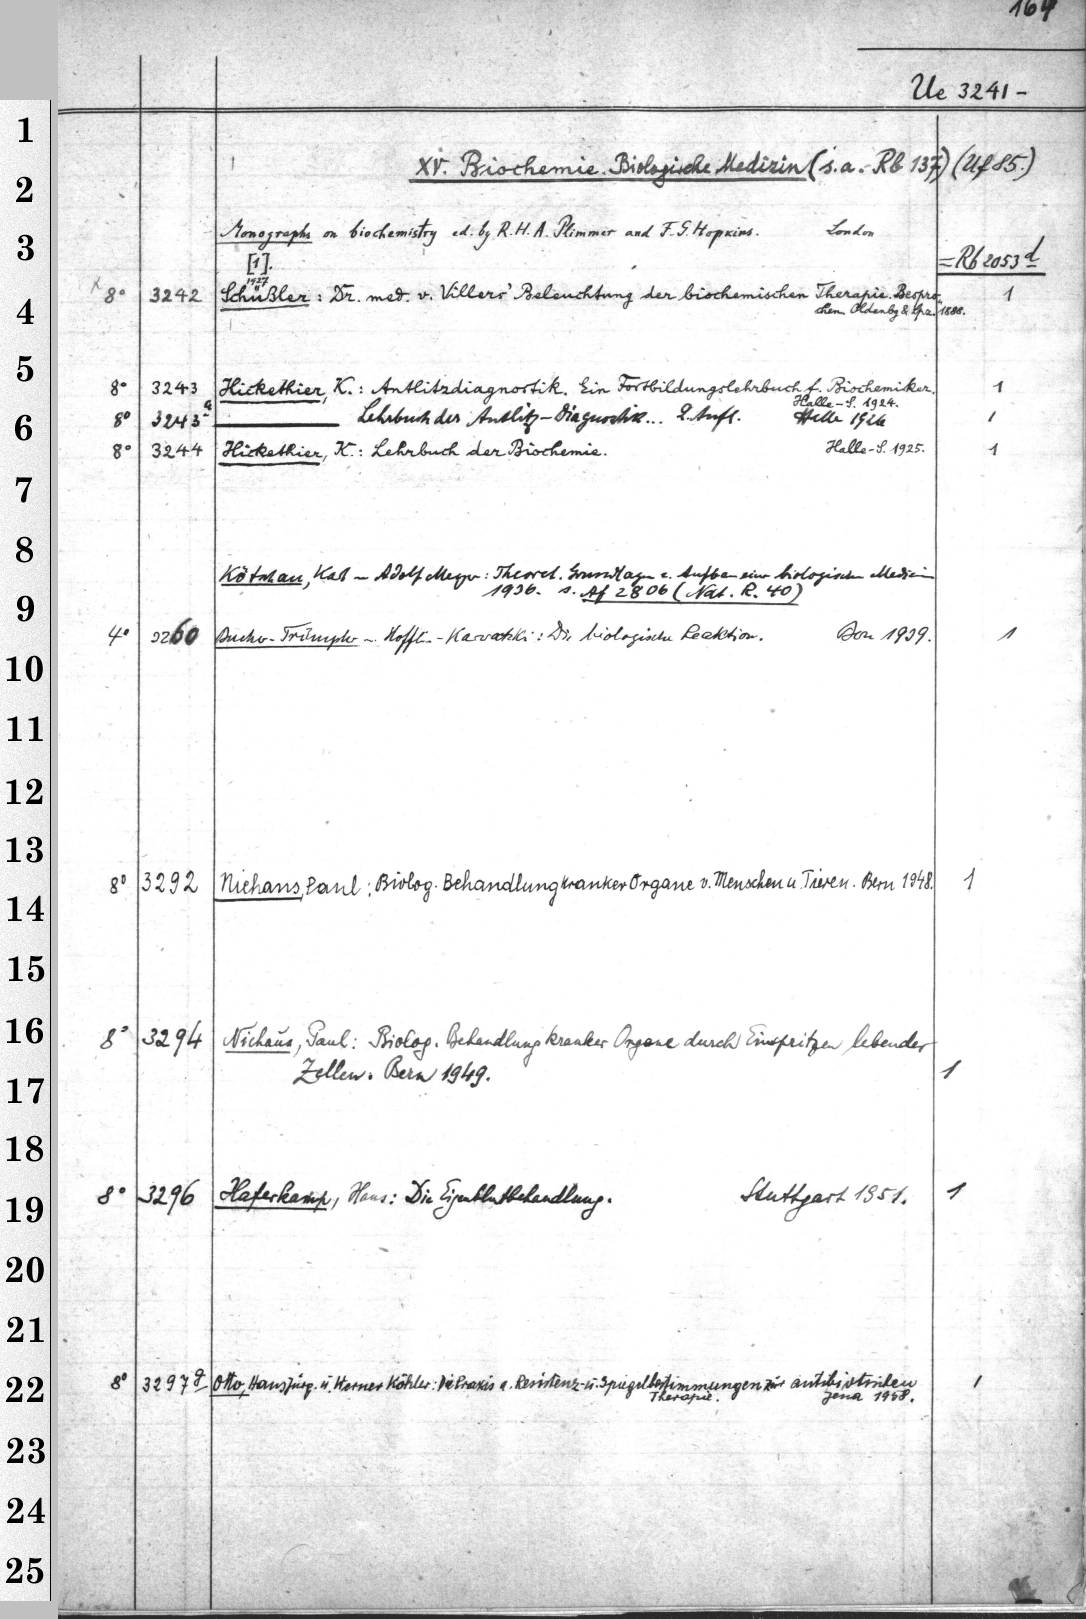 164
Ue 3241 -
XV. Biochemie. Biologische Medizin (s. a. Rb 137) (Uf 85.)
Monographs on biochemistry ed. by R. H. A. Plimmer and F. G. Hopkins. London
[1]. = Rb 2053 d
1927
8° 3242 Schüßler: Dr. med. v. Villers' Beleuchtung der biochemischen Therapie. Bespro- 1
chen. Oldenbg & Lpz. 1888.
8° 3243 Hickethier, K.: Antlitzdiagnostik. Ein Fortbildungslehrbuch f. Biochemiker. 1
Halle-S. 1924.
8° 3243 a Lehrbuch der Antlitz-Diagnostik... 2. Aufl. Halle 1926 1
8° 3244 Hickethier, K.: Lehrbuch der Biochemie. Halle-S. 1925. 1
Kötschau, Karl - Adolf Meyer: Theoret. Grundlagen z. Aufbau einer biologischen Medizin
1936. s. Af 2806 (Nat. R. 40)
4° 3260 - Die biologische Reaktion. 1939. 1
8° 3292 Niehans, Paul: Biolog. Behandlung kranker Organe v. Menschen u. Tieren. Bern 1948. 1
8° 3294 Niehans, Paul: Biolog. Behandlung kranker Organe durch Einspritzen lebender
Zellen. Bern 1949. 1
8° 3296 Haferkamp, Hans: Die Eigenblutbehandlung. Stuttgart 1951. 1
8° 3297 g Otto, Hansjürg. u. Werner Köhler: Die Praxis d. Resistenz- u. Spiegelbestimmungen zur antibiotischen 1
Therapie. Jena 1958.
1
2
3
4
5
6
7
8
9
10
11
12
13
14
15
16
17
18
19
20
21
22
23
24
25